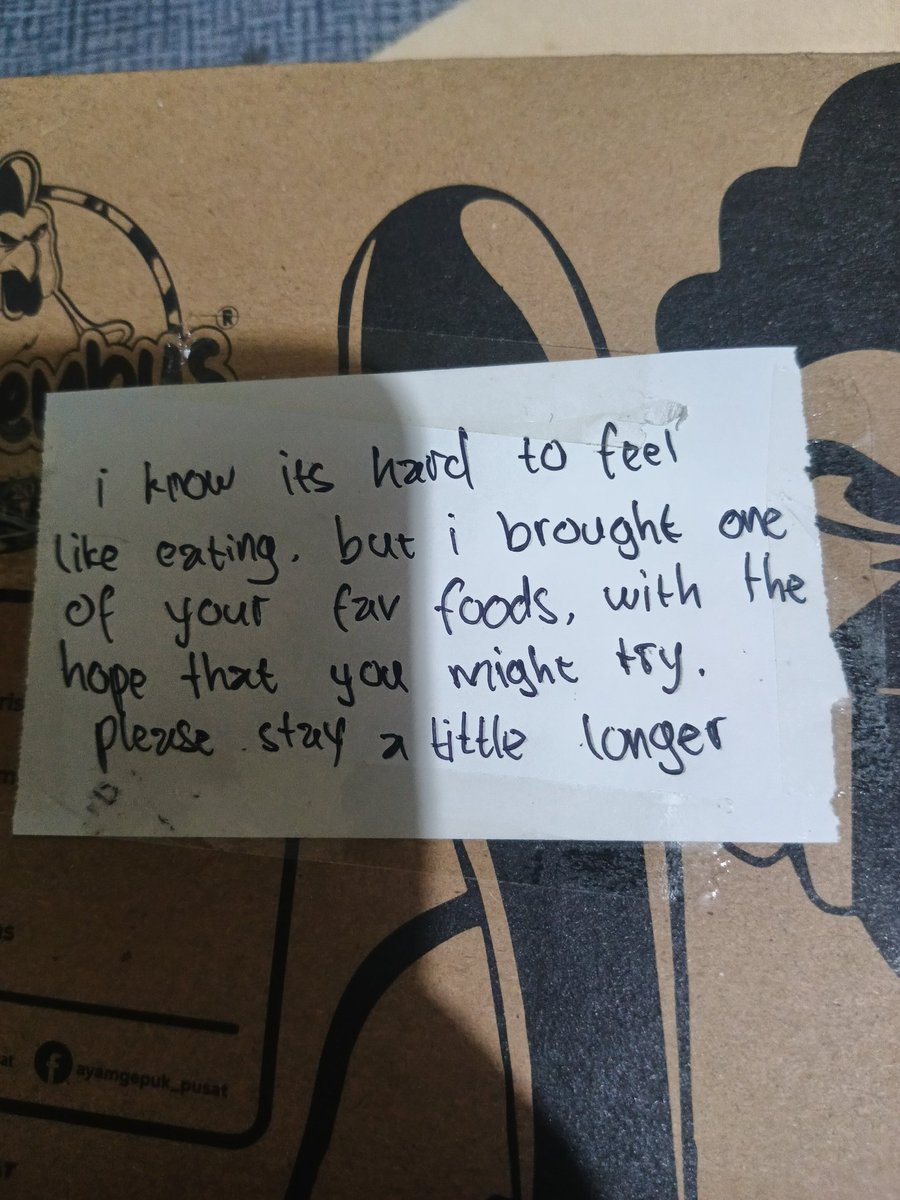 ®
i know its hard to feel
like eating. but i brought one
of your fav foods, with the
hope that you might try.
please stay a little longer
ayamgepuk_pusat